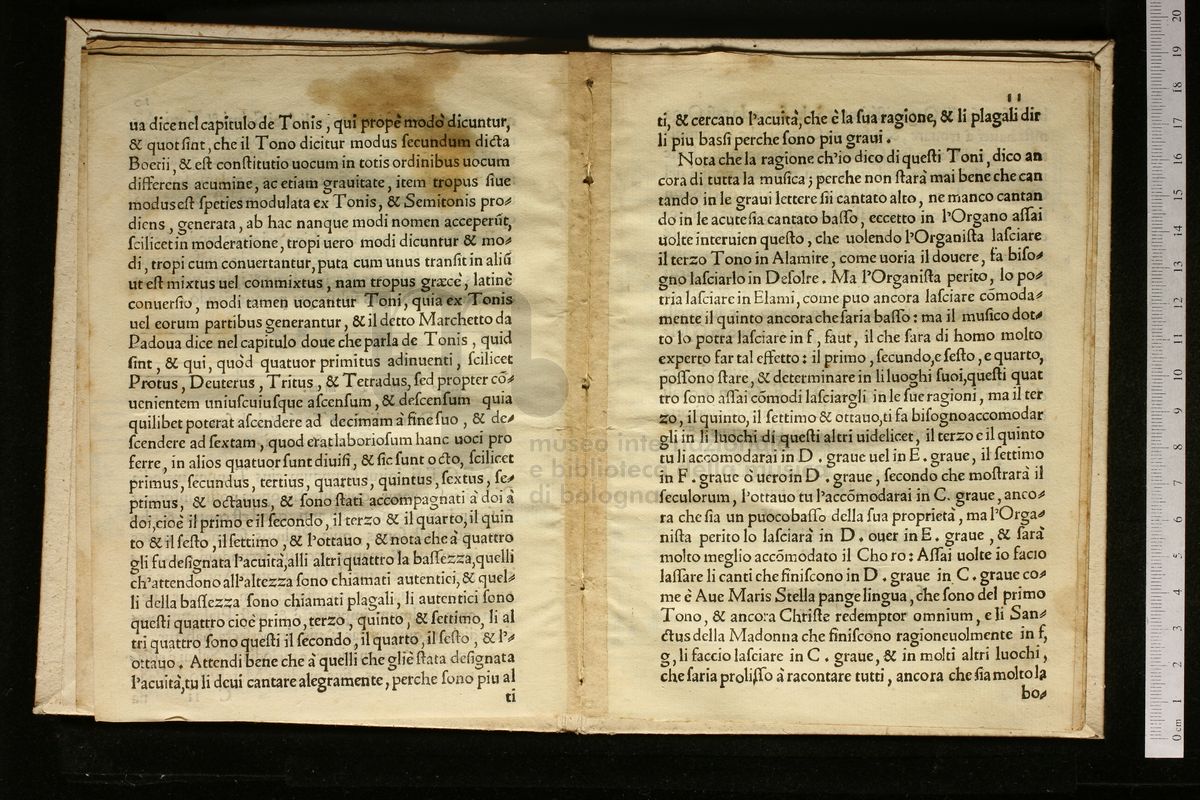 ua dice nel capitulo de Tonis, qui propè modò dicuntur,
& quot sint, che il Tono dicitur modus secundum dicta
Boetii, & est constitutio uocum in totis ordinibus uocum
differens acumine, ac etiam grauitate, item tropus siue
modus est speties modulata ex Tonis, & Semitonis pro-
diens, generata, ab hac nanque modi nomen acceperūt,
scilicet in moderatione, tropi uero modi dicuntur & mo-
di, tropi cum conuertantur, puta cum unus transit in aliū
ut est mixtus uel commixtus, nam tropus græcè, latinè
conuersio, modi tamen uocantur Toni, quia ex Tonis
uel eorum partibus generantur, & il detto Marchetto da
Padoua dice nel capitulo doue che parla de Tonis, quid
sint, & qui, quòd quatuor primitus adinuenti, scilicet
Protus, Deuterus, Tritus, & Tetradus, sed propter cō-
uenientem uniuscuiusque ascensum, & descensum quia
quilibet poterat ascendere ad decimam à fine suo, & de-
scendere ad sextam, quod erat laboriosum hanc uoci pro
ferre, in alios quatuor sunt diuisi, & sic sunt octo, scilicet
primus, secundus, tertius, quartus, quintus, sextus, se-
ptimus, & octauus, & sono stati accompagnati à doi à
doi, cioè il primo e il secondo, il terzo & il quarto, il quin
to & il sesto, il settimo, & l'ottauo, & nota che à quattro
gli fu designata l'acuità, alli altri quattro la bassezza, quelli
ch'attendono all'altezza sono chiamati autentici, & quel-
li della bassezza sono chiamati plagali, li autentici sono
questi quattro cioè primo, terzo, quinto, & settimo, li al
tri quattro sono questi il secondo, il quarto, il sesto, & l'-
ottauo. Attendi bene che à quelli che gliè stata designata
l'acuità, tu li deui cantare alegramente, perche sono piu al
ti
11
ti, & cercano l'acuità, che è la sua ragione, & li plagali dir
li piu bassi perche sono piu graui.
Nota che la ragione ch'io dico di questi Toni, dico an
cora di tutta la musica; perche non starà mai bene che can
tando in le graui lettere sii cantato alto, ne manco cantan
do in le acute sia cantato basso, eccetto in l'Organo assai
uolte interuien questo, che uolendo l'Organista lasciare
il terzo Tono in Alamire, come uoria il douere, fa biso-
gno lasciarlo in Desolre. Ma l'Organista perito, lo po-
tria lasciare in Elami, come puo ancora lasciare cōmoda-
mente il quinto ancora che saria basso: ma il musico dot-
to lo potra lasciare in f, faut, il che sara di homo molto
experto far tal effetto: il primo, secundo, e sesto, e quarto,
possono stare, & determinare in li luoghi suoi, questi quat
tro sono assai cōmodi lasciargli in le sue ragioni, ma il ter
zo, il quinto, il settimo & ottauo, ti fa bisogno accomodar
gli in li luochi di questi altri uidelicet, il terzo e il quinto
tu li accomodarai in D. graue uel in E. graue, il settimo
in F. graue ò uero in D. graue, secondo che mostrarà il
seculorum, l'ottauo tu l'accōmodarai in C. graue, anco-
ra che sia un puoco basso della sua proprietà, ma l'Orga-
nista perito lo lasciarà in D. ouer in E. graue, & sarà
molto meglio accōmodato il Choro: Assai uolte io facio
lassare li canti che finiscono in D. graue in C. graue co-
me è Aue Maris Stella pange lingua, che sono del primo
Tono, & ancora Christe redemptor omnium, e li San-
ctus della Madonna che finiscono ragioneuolmente in f,
g, li faccio lasciare in C. graue, & in molti altri luochi,
che saria prolisso à racontare tutti, ancora che sia molto la
bo-
museo internazionale
e biblioteca della musica
di bologna
0 cm 1 2 3 4 5 6 7 8 9 10 11 12 13 14 15 16 17 18 19 20